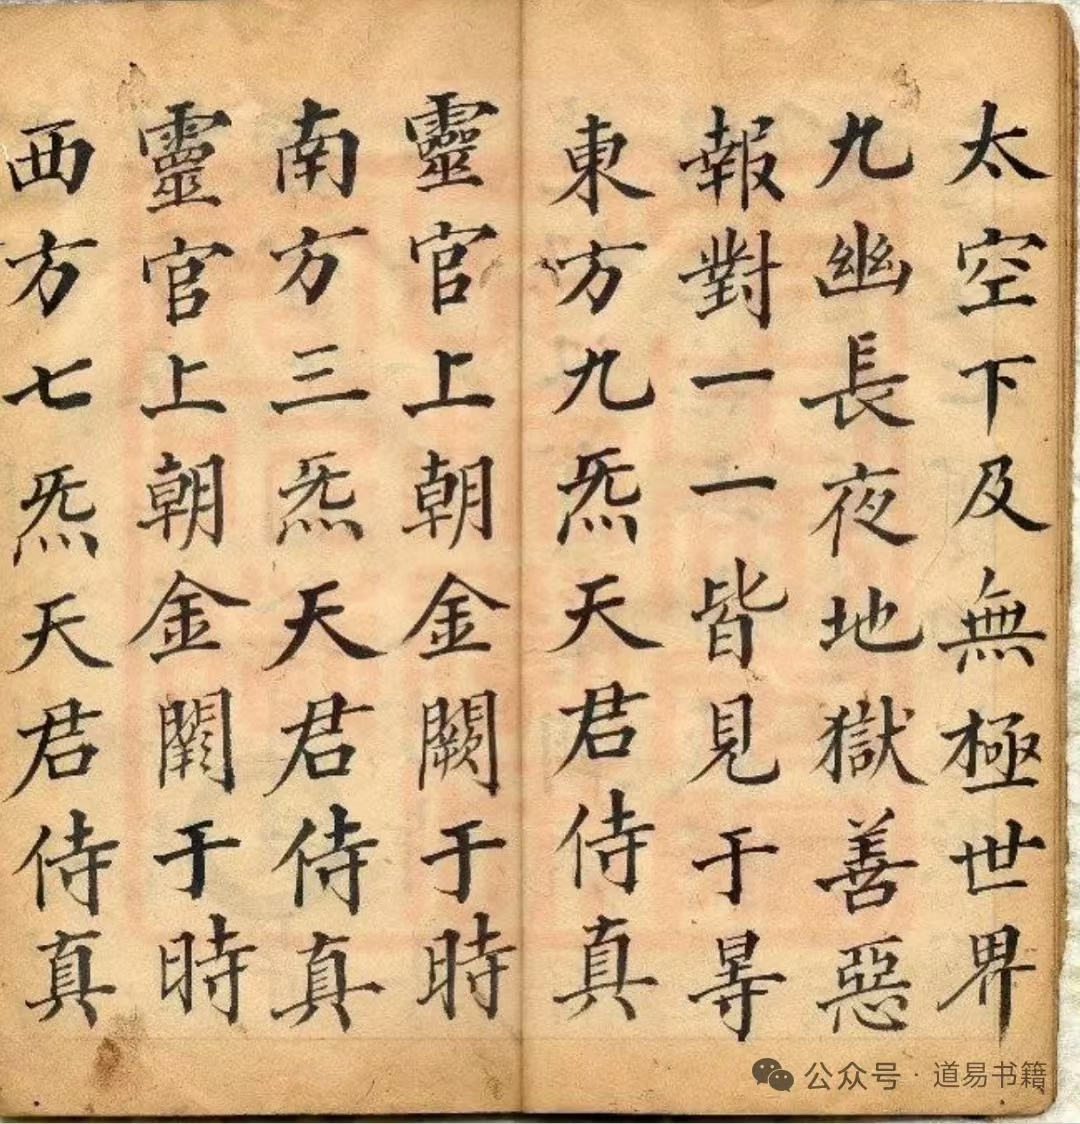 太空下及無極世界
九幽長夜地獄善惡
報對一一皆見于㝵
東方九炁天君侍真
靈官上朝金闕于時
南方三炁天君侍真
靈官上朝金闕于時
西方七炁天君侍真
公众号 · 道易书籍